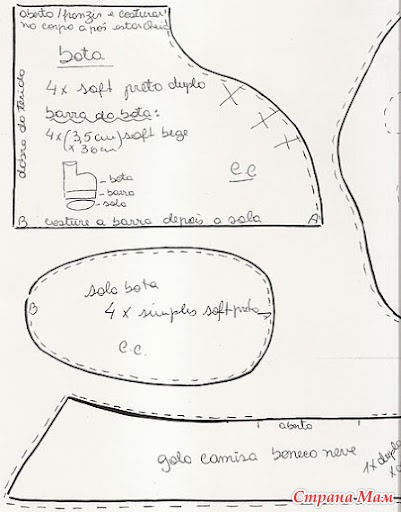 aberto/franzir e costurar
no corpo após estar cheio
bota
4x soft preto duplo
barra da bota:
4x (3,5cm x 30cm) soft bege
dobra do tecido
bota
barra
sola
e.e
B costure a barra depois a sola A
sola bota
B 4x simples soft preto
e.e.
aberto
gola camisa boneco neve
1x duplo
Страна Мам